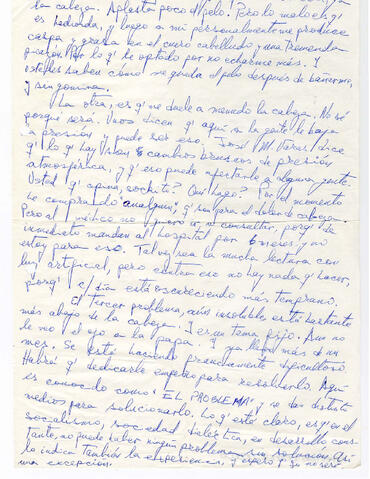 la cabeza. Aplasta poco el pelo. Pero lo malo es q'
es redonda, y luego a mí personalmente me produce
caspa y grasa en el cuero cabelludo y una tremenda
Por lo q' he optado por no echarme más. Y
Uds saben como me queda el pelo después de bañarme,
y sin gomina.
La otra, es q' me duele a menudo la cabeza. No sé
porqué será. Unos dicen q' aquí a la gente le baja
la presión y puede ser eso. José M. Varas dice
q' lo q' hay son cambios bruscos de presión
atmosférica, y q' eso puede afectarle a alguna gente.
Usted q' opina, Qué hago? Por el momento
he comprado "analgin", q' sirve para el dolor de cabeza.
Pero al médico no quiero ir a consultar, porq' de
inmediato mandan al hospital por 6 meses, y no
estoy para eso. Tal vez sea la mucha lectura con
luz artificial, pero contra eso no hay nada q' hacer,
porq' c/día está oscureciendo más temprano.
El tercer problema, aún insoluble está bastante
más abajo de la cabeza. Y es un tema fijo. Aun no
le veo el ojo a la papa. Y ya llevo más de un
mes. Se está haciendo francamente dificultoso
Habrá q' dedicarle empeño para resolverlo. Aquí
es conocido como "EL PROBLEMA" y se dan distintos
medios para solucionarlo. Lo q' está claro, es q' en el
socialismo, sociedad dialéctica, en desarrollo cons-
tante, no puede haber ningún problema sin solución. Así
lo indica también la experiencia, y espero q' yo no seré
una excepción.